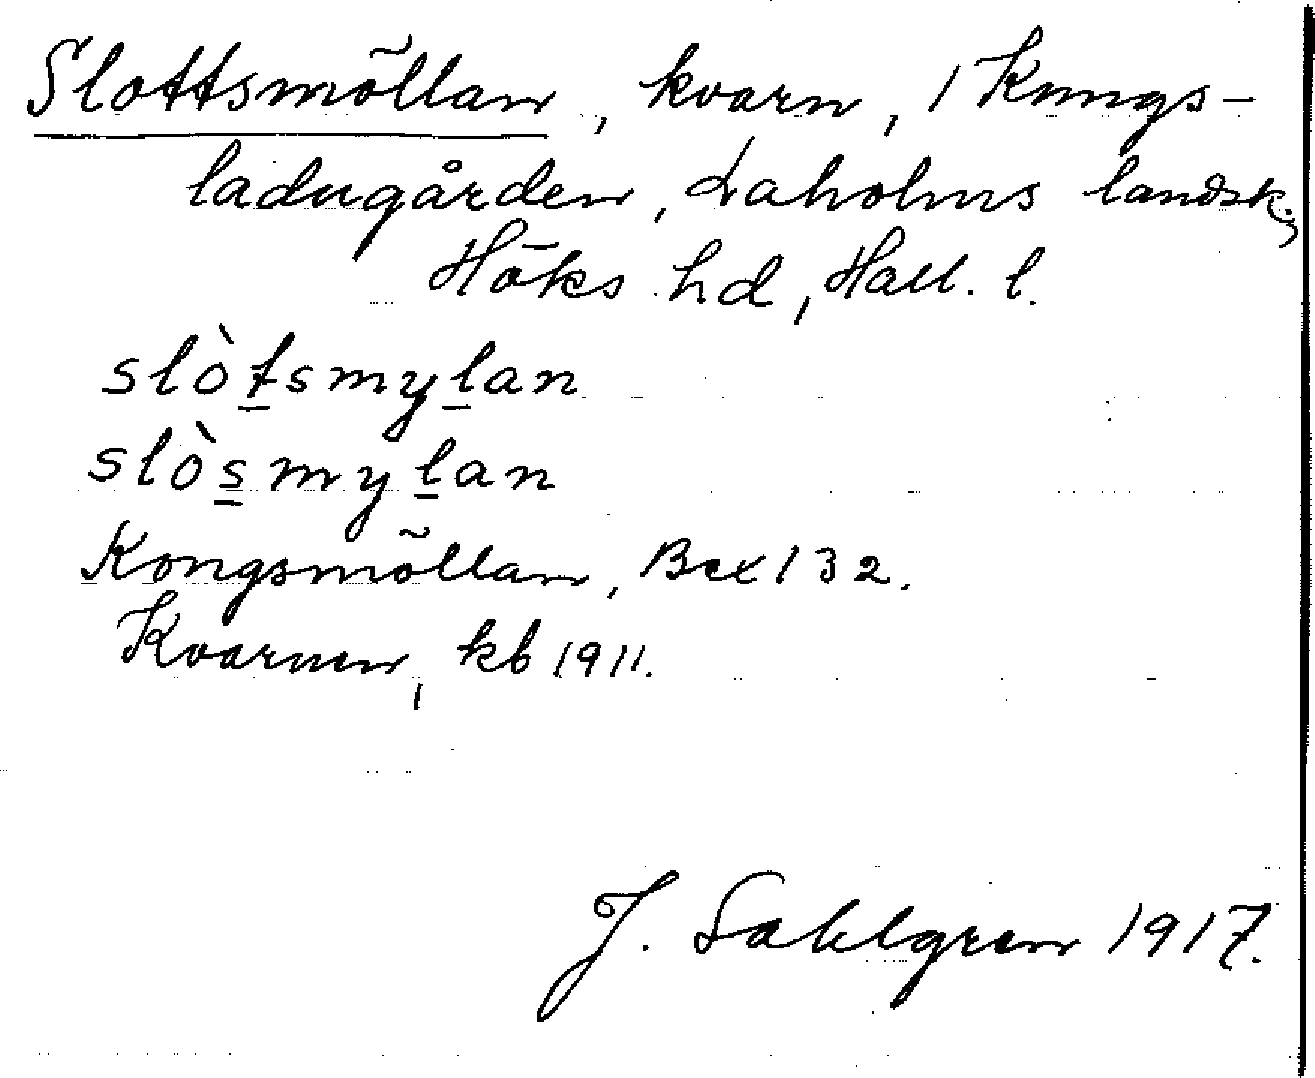 Slottsmöllan, kvarn, 1 Kungs-
ladugården, Laholms landsk.,
Höks hd, Hall. l.
slòtsmylan
slòsmylan
Kongsmöllan, Bex 132.
Kvarnen, kb 1911.
J. Sahlgren 1917.